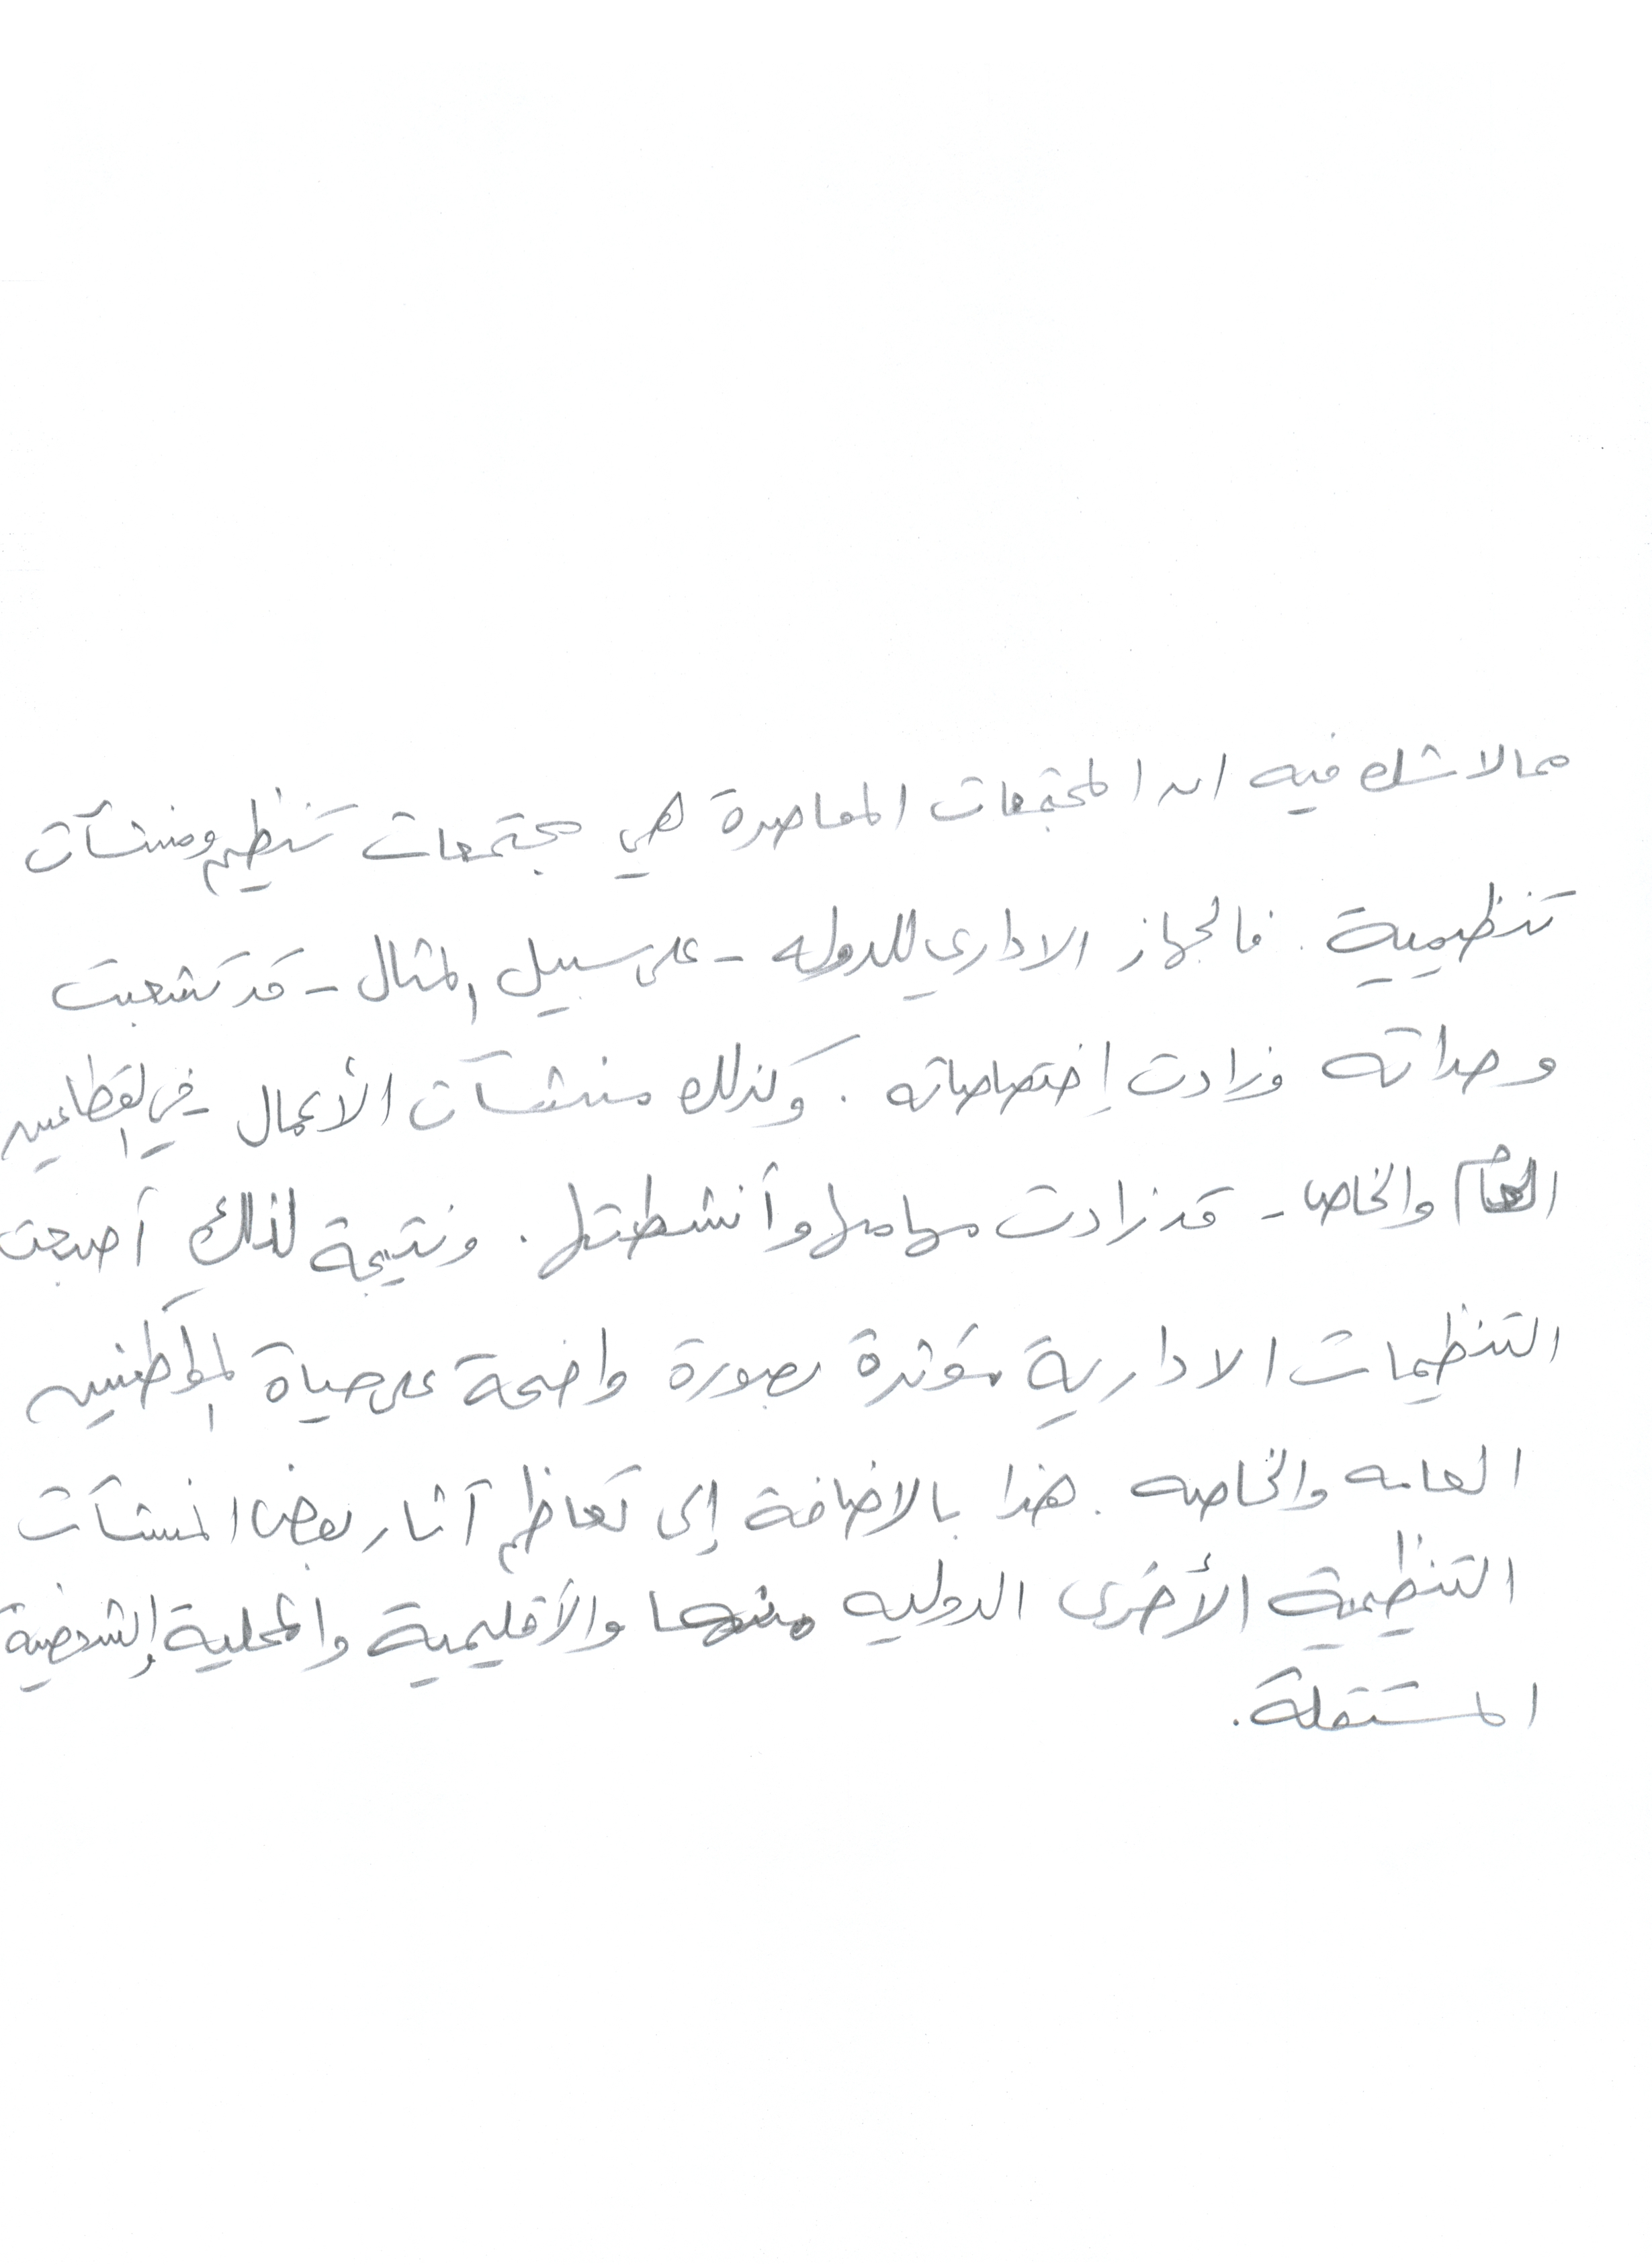 مما لا شك فيه ان المجتمعات المعاصرة هي مجتمعات تنظيم ومنشآت
تنظيمية. فالجهاز الاداري للدوله - على سبيل المثال - قد تشعبت
وحداته وزادت إختصاصاته. وكذلك منشآت الأعمال - في القطاعين
العام والخاص - قد زادت مهامها وأنشطتها. ونتيجة لذلك أصبحت
التنظيمات الادارية مؤثرة بصورة واضحة على حياة المواطنين
العامه والخاصه. هذا بالاضافة إلى تعاظم آثار بعض المنشآت
التنظيمية الأخرى الدوليه منها والأقليمية والمحلية
المستقلة.